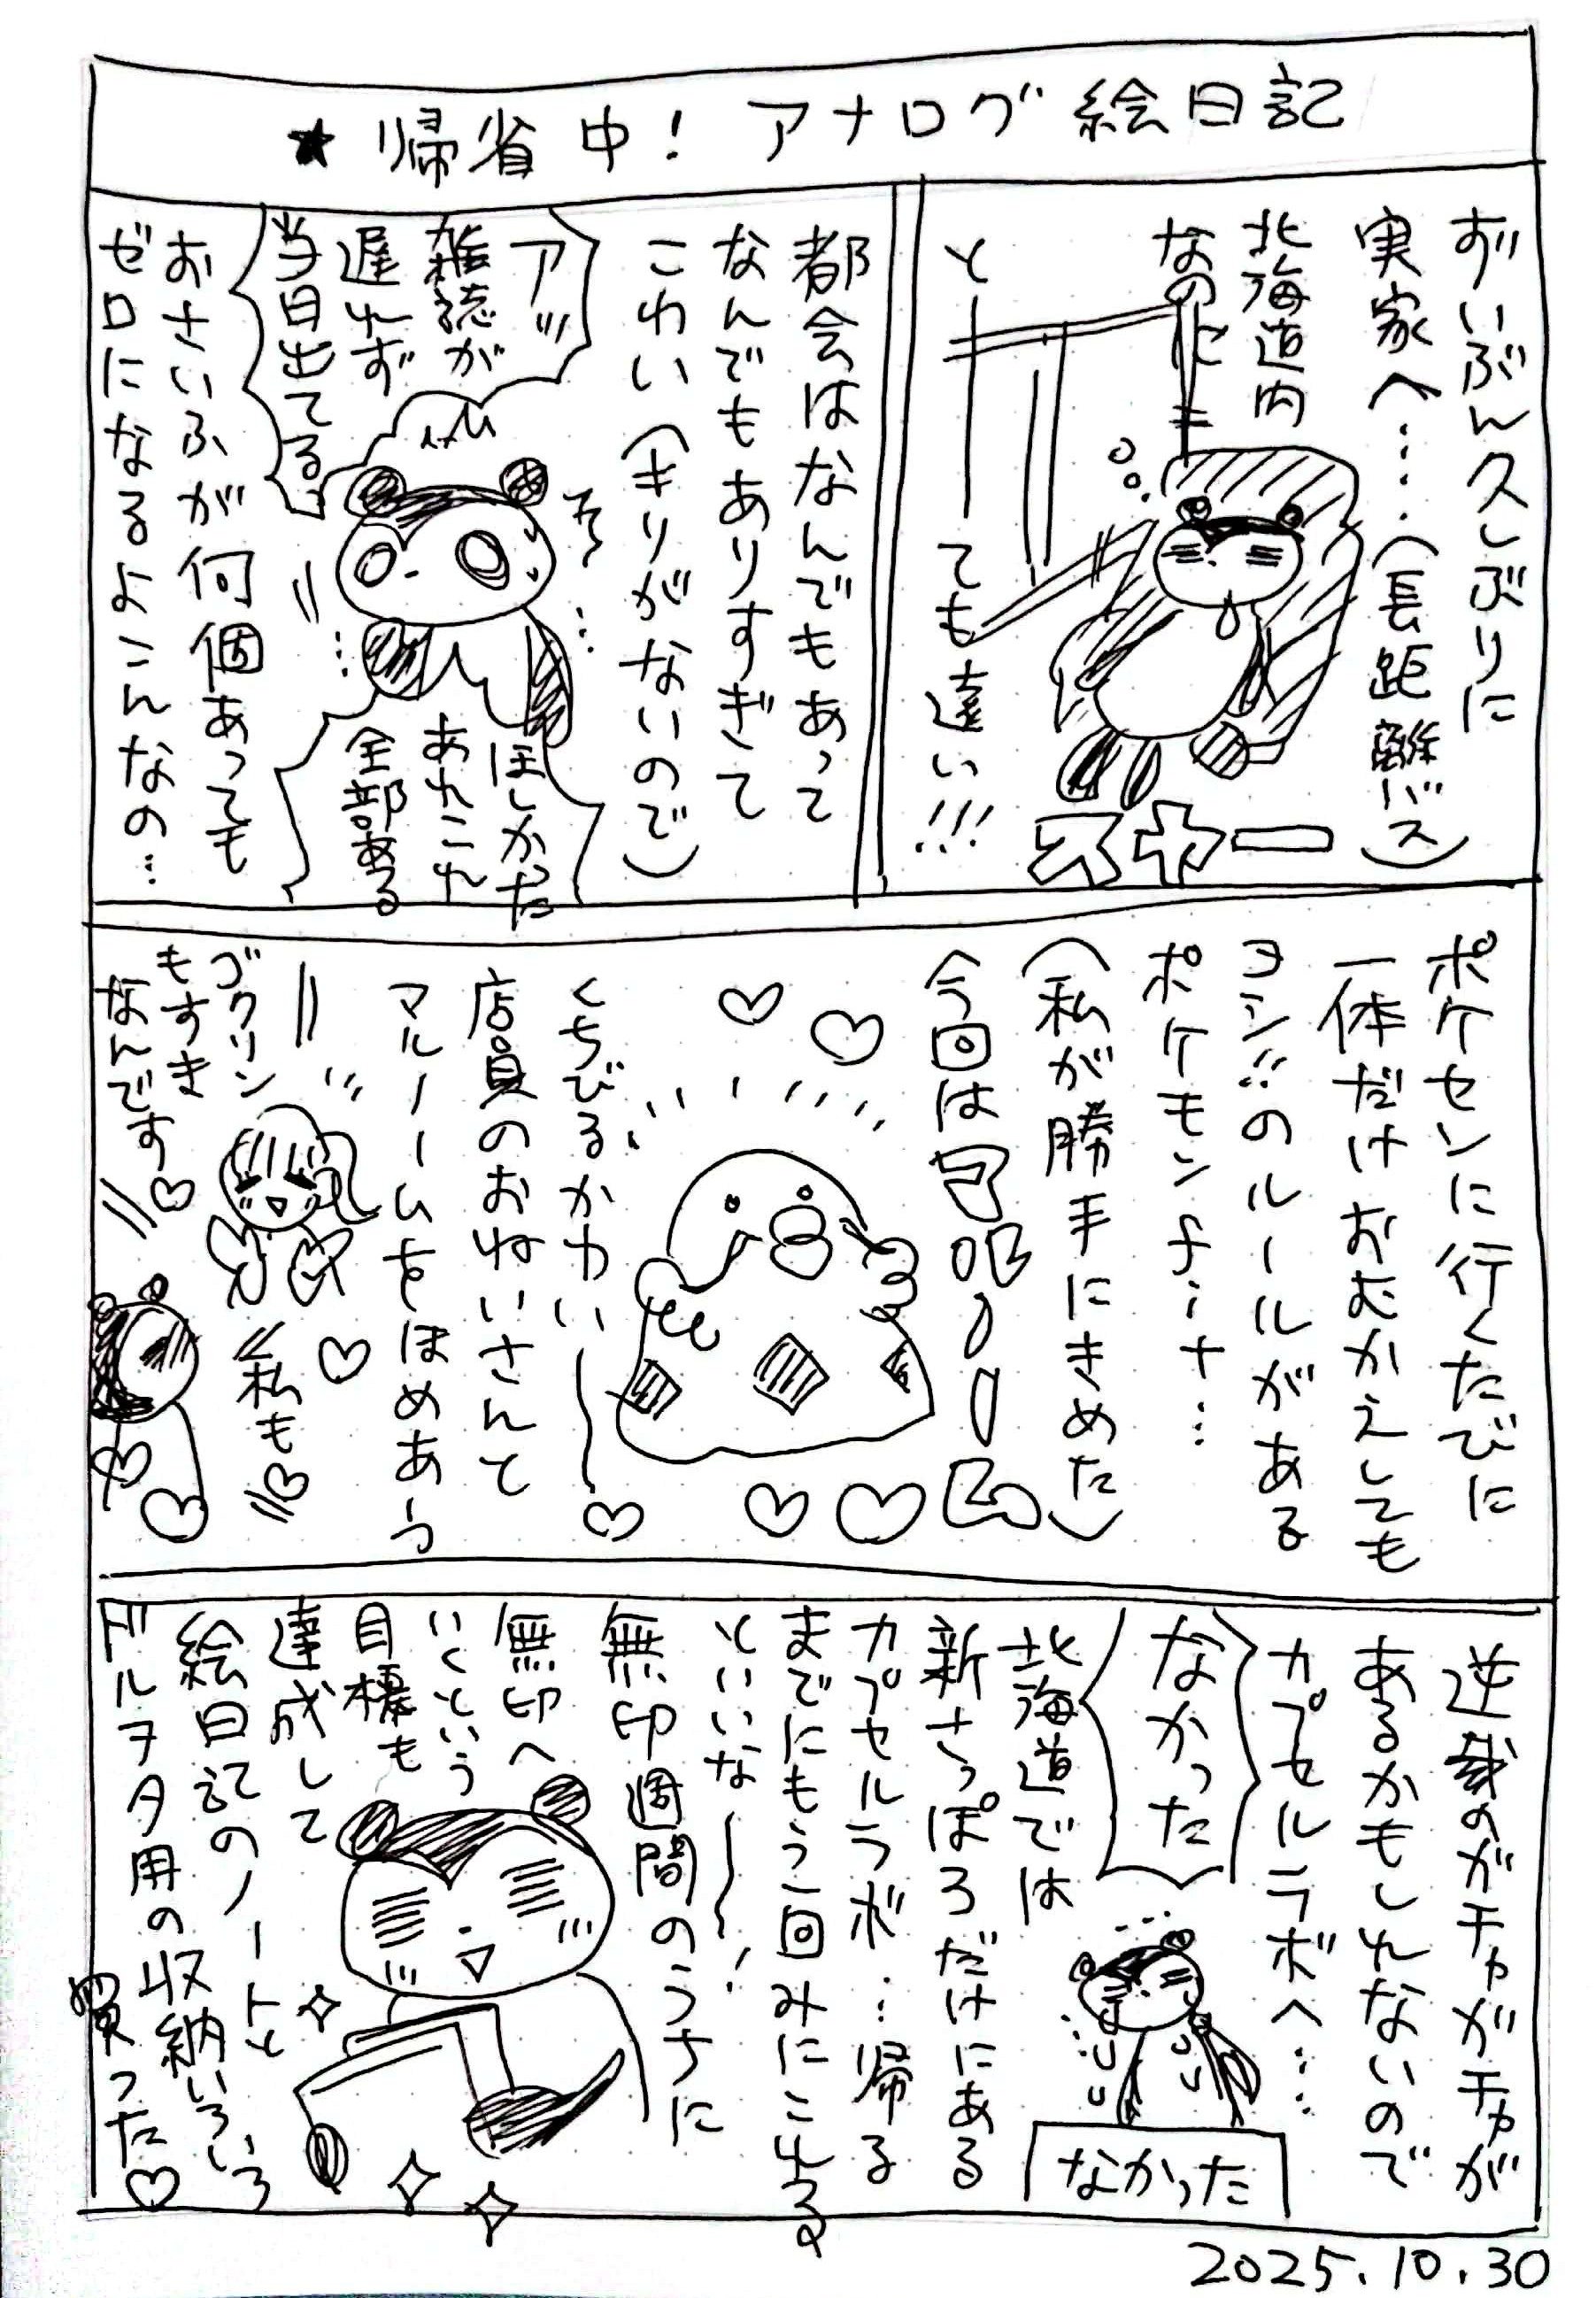 ★帰省中！アナログ絵日記
ずいぶん久しぶりに
実家へ……（長距離バス）
北海道内
なのに
とーーっても遠い!!!
スヤー
都会はなんでもあって
なんでもありすぎて
こわい（キリがないので）
アッ
雑誌が
遅れず
当日出てる
ほしかった
あれこれ
全部ある
おさいふが何個あっても
ゼロになるよこんなの…
ポケセンに行くたびに
一体だけおむかえしても
ヨシ!!のルールがある
ポケモンす…
（私が勝手にきめた）
今回は
マルノーム
くちびるかわいーー♡
店員のおねいさんと
マルノームをほめあう
ゴクリン
もすき
なんです♡
私も♡
逆裁のガチャガチャが
あるかもしれないので
カプセルラボへ…
なかった
なかった
北海道では
新さっぽろだけにある
カプセルラボ…帰る
までにもう一回みにこれる
といいなーー！
無印週間のうちに
無印へ
いくという
目標も
達成して
絵日記のノートと
ドルヲタ用の収納いろいろ
買った♡
2025.10.30